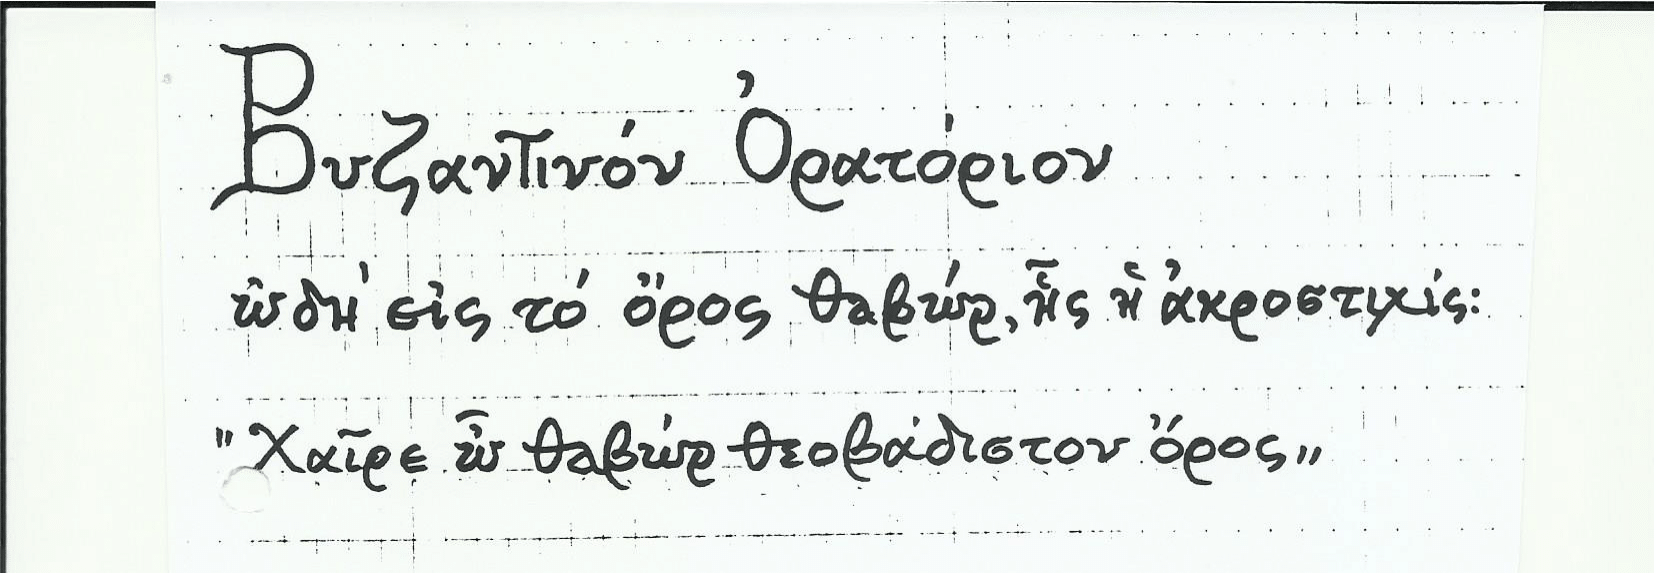 Βυζαντινόν Ὀρατόριον
ὠδή εἰς τό ὄρος Θαβώρ, ἧς ἡ ἀκροστιχίς:
"Χαῖρε ὦ Θαβώρ θεοβάδιστον ὄρος"